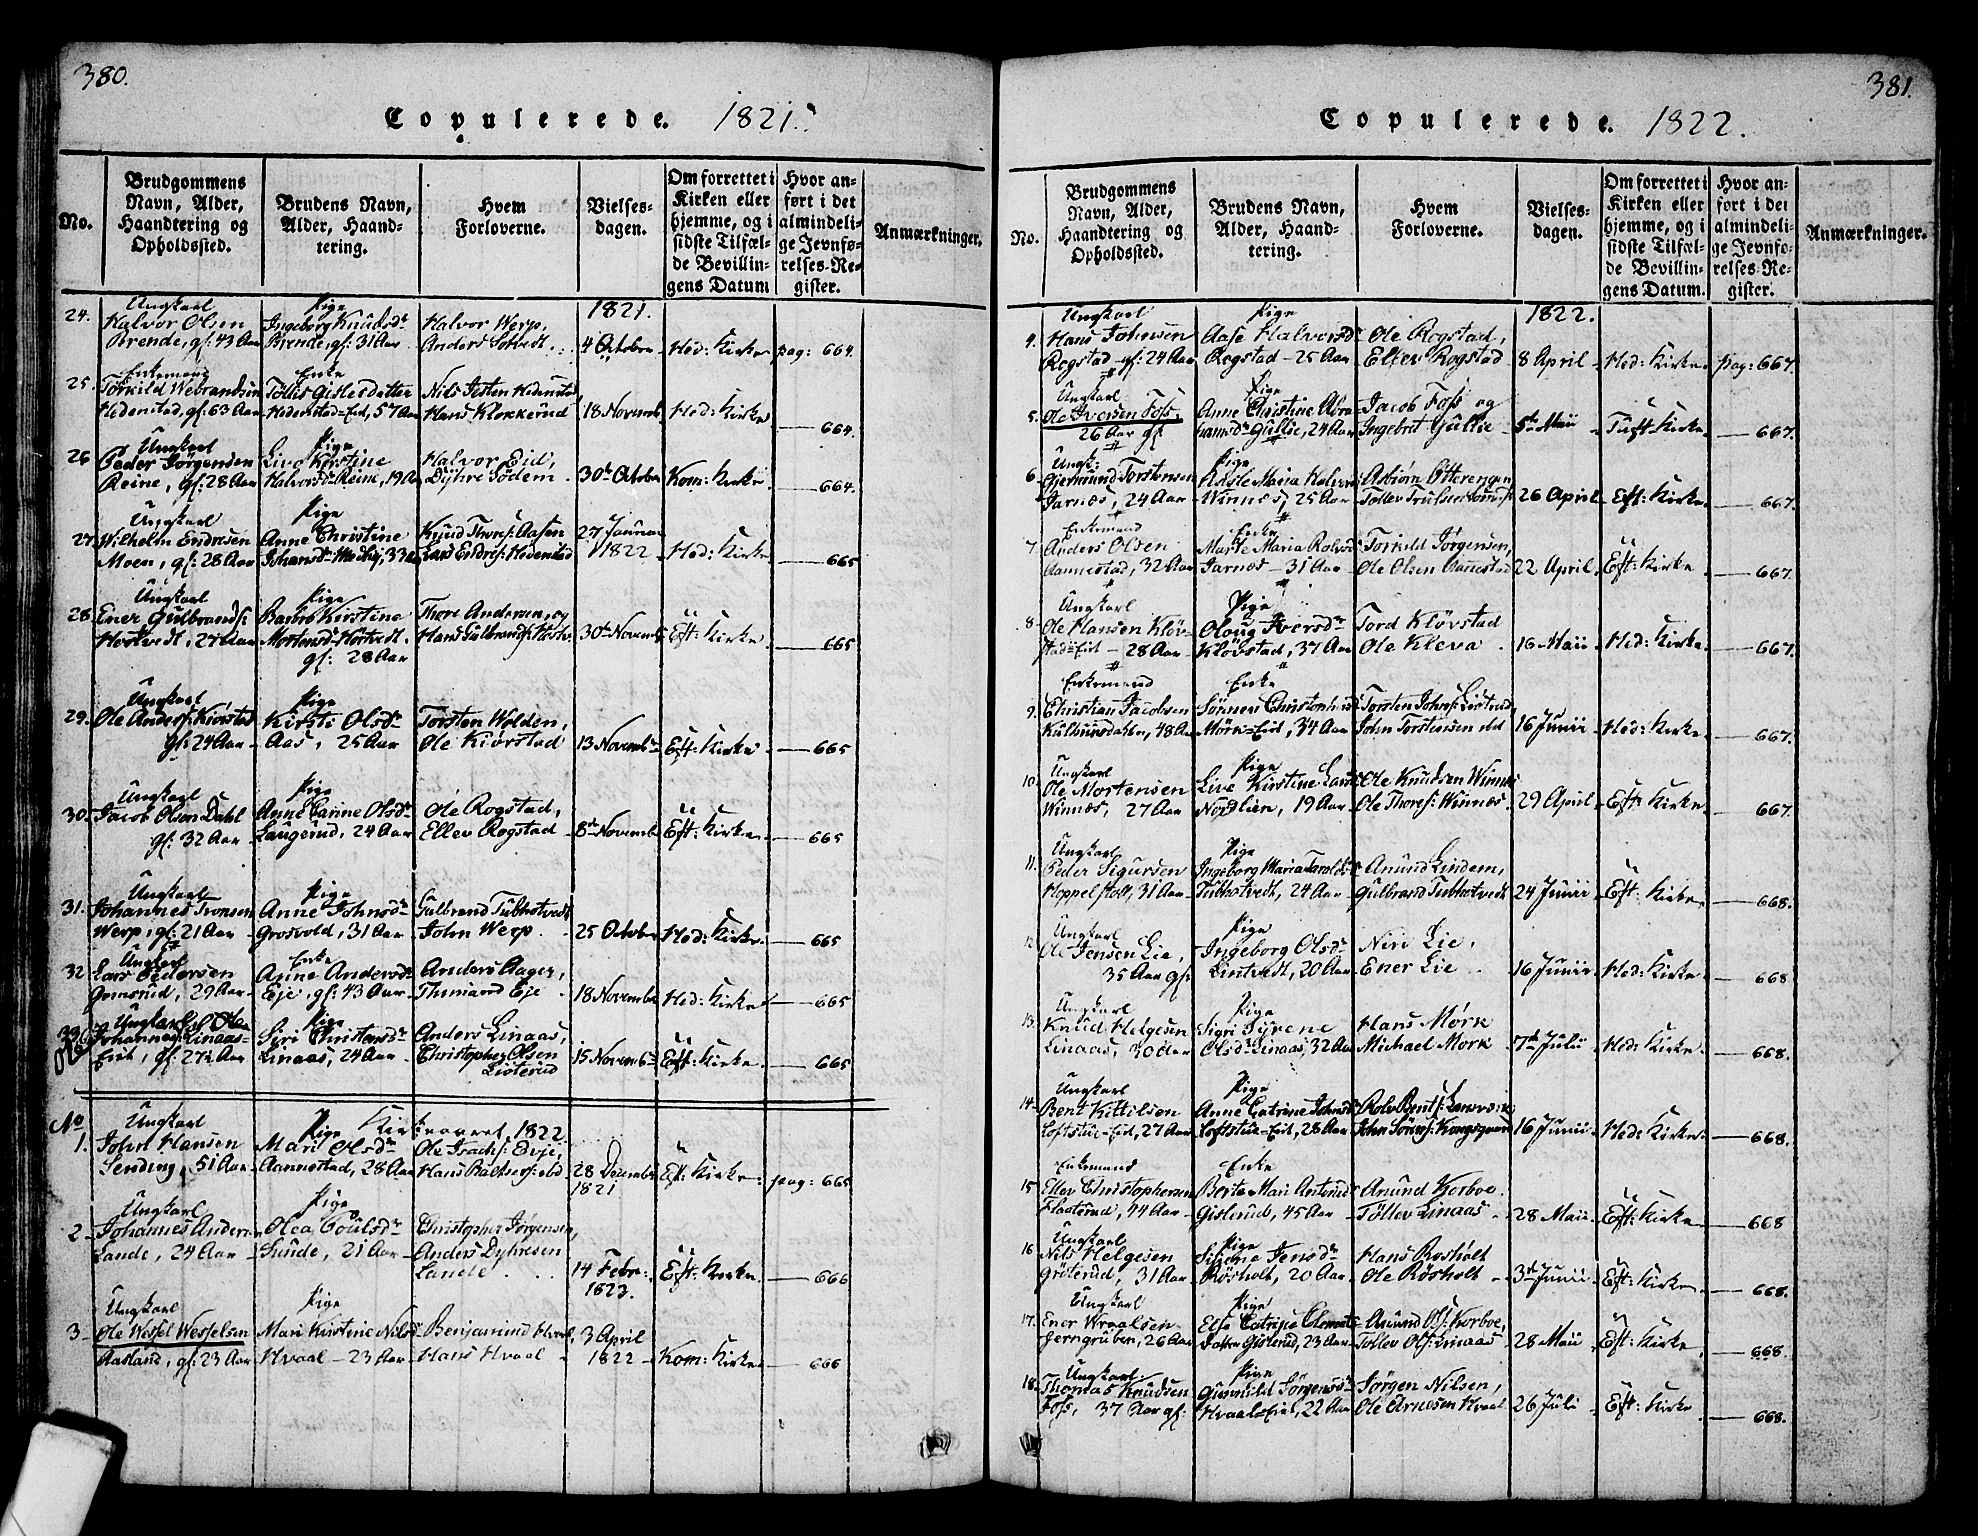 380.
Copulerede. 1821.
No.
Brudgommens Navn, Alder, Haandtering og Opholdssted.
Brudens Navn, Alder, Haandtering.
Hvem Forloverne.
Vielsesdagen.
Om forrettet i Kirken eller hjemme, og i sidste Tilfælde Bevillingens Datum
Hvor anført i det almindelige Jevnførelses-Register.
Anmærkninger.
1821.
24. Ungkarl Halvor Olsen Brende, gf: 43 Aar
Pige Ingeborg Knudsdr Brende, gf: 31 Aar
Halvor Werp, Anders Sotvedt
4 October Hed: Kirke pag: 664.
25. Enkemand Torkild Webrandsen Hedenstad, gf: 63 Aar
Enke Tollis Gislesdatter Hedenstad-Eid, 57 Aar
Nils Isten Hedenstad Hans Klokkerud
18 Novemb. Hed: Kirke 664.
26 Ungkarl Peder Jørgensen Reine, gf: 28 Aar
Pige Live Kirstine Halvorsdr Reine, 19 Aar
Halvor Eid, Dyhre Sødem
30te October Kom: Kirke 664.
27. Ungkarl Wilhelm Endresen Moen, gf: 28 Aar
Pige Anne Christine Johansdr 33 Aar
Knud Thors: Aasen Lars Endres: Hedenstad
27 Januar 1822 Hed: Kirke 665
28. Ungkarl Ener Gulbrands: Hostvedt, 27 Aar
Pige Barbro Kirstine Mortensdr Hostvedt. gf: 28 Aar
Thore Andersen, og Hans Gulbrands: Hostv.
30te Novemb. Eft: Kirke 665
29. Ungkarl Ole Anders: Kiørstad gf: 24 Aar
Pige Kirsti Olsdr Aas, 25 Aar
Torsten Wolden, Ole Kiørstad
13 Novembr Eft: Kirke 665
30. Ungkarl Jacob Olsen Dahl gf: 32 Aar
Pige Anne Carine Olsdr Laugerud, 24 Aar
Ole Rogstad, Ellev Rogstad
8de Novemb. Eft: Kirke 665
31. Ungkarl Johannes Tronsen Werp, gf: 21 Aar
Pige Anne Johnsdr Grosvold, 31 Aar
Gulbrand Tubhotvedt John Werp
25 October Hed: Kirke. 665
32 Ungkarl Lars Pedersen Ormsrud, 29 Aar
Enke Anne Andersdr Eje, gf: 43 Aar
Anders Aager, Thurand Eje
18 Novembr Hed: Kirke 665
33 Ungkarl Ole Johannes: Linaas-Eid, gf: 27½ Aar
Pige Siri Christensdr Linaas, 24 Aar
Anders Linaas, Christopher Olsen Listerud
15 Novembr Eft: Kirke. 665
No Kirkeaaret 1822.
1. Ungkarl John Hansen Sending, 51 Aar
Pige Mari Olsdr Aannestad, 28 Aar
Ole Isachs: Evje, Hans Baltsers: ibd
28 December 1821 Eft: Kirke. pag: 665
2. Ungkarl Johannes Anders Lande, 24 Aar
Pige Olea Poulsdr Lunde, 21 Aar
Christopher Jørgensen, Anders Dyhresen Lande
14 Febr: 1823. Eft: Kirke. 666
3. Ungkarl Ole Wessel Wesselsen Aasland, gf: 23 Aar
Pige Mari Kirstine Nilsdr Hvaal - 23 Aar
Benjamin Hvaal, Hans Hvaal
3 April 1822 Kom: Kirke 666
381.
Copulerede. 1822.
No.
Brudgommens Navn, Alder, Haandtering og Opholdssted.
Brudens Navn, Alder, Haandtering.
Hvem Forloverne.
Vielsesdagen.
Om forrettet i Kirken eller hjemme, og i sidste Tilfælde Bevillingens Datum.
Hvor anført i det almindelige Jevnføreses-Register.
Anmærkninger.
1822.
4. Ungkarl Hans Johnsen Rogstad gf: 24 Aar
Pige Aase Halvorsdr Rogstad - 25 Aar
Ole Rogstad, Ellev Rogstad
8 April Hed: Kirke. pag: 667.
5. Ungkarl Ole Iversen Foss, 26 Aar gf
Pige Anne Christine Abrahamsdr Gullie, 24 Aar
Jacob Foss og Ingebret Gullie
5te Maii Tuft Kirke 667.
6. Ungk: Gjermund Torstensen Jarnæs, 24 Aar
Pige Maria Winnæs, 25 Aar
Asbiørn Otterengen Tollev
26 April Eft: Kirke. 667.
7. Enkemand Anders Olsen Aannestad, 32 Aar
Enke Marte Maria Rolvsdr Jarnæs - 31 Aar
Torkild Jørgensen, Ole Olsen Aannestad
22 April Eft: Kirke. 667.
8. Ungkarl Ole Hansen Kløvstad-Eid - 28 Aar
Pige Oloug Iversdr Kløvstad, 37 Aar
Tord Kløvstad Ole Kleva
16 Maii Hed: Kirke. 667.
9. Enkemand Christian Jacobsen 48 Aar
Enke Sønnevi Mørk-Eid, 34 Aar
Torsten Johns: Listrud, John Torstensen ibd
16 Junii Hed: Kirke. 667.
10. Ungkarl Ole Mortensen Winnæs, 27 Aar
Pige Live Kirstine Larsdr Nordlien, 19 Aar
Ole Knudsen Winnæs Ole Thores: Winnæs
29 April Eft: Kirke. 667.
11. Ungkarl Peder Sigursen Hoppestolt, 31 Aar
Pige Ingeborg Maria Haroldsdr Tubhotvedt, 24 Aar
Anund Lindem, Gulbrand Tubhotvedt
24 Junii Eft: Kirke. 668.
12. Ungkarl Ole Jensen Lie, 35 Aar gf:
Pige Ingeborg Olsdr Lintvedt, 20 Aar
Niri Lie, Ener Lie
16 Junii Hed: Kirke 668
13. Ungkarl Knud Helgesen Linaas, 30 Aar
Pige Sigri Syrene Olsdr Linaas, 32 Aar
Hans Mørk Michael Mørk
7de Julii Hed: Kirke. 668.
14. Ungkarl Bent Kittilsen Loftstue-Eid, 27 Aar
Pige Anne Catrine Johnsdr Loftstue-Eid, 28 Aar
Rolv Bents: John Sørens: Kongsgaard
16 Junii Hede Kirke 668.
15 Enkemand Ellev Christophersen Flaaterud, 44 Aar
Enke Berte Mari Antonsdr Gislerud, 45 Aar
Anund Korboe. Tollev Linaas
28 Maii Eft: Kirke 668
16 Ungkarl Nils Helgesen Grøterud, 31 Aar
Pige Jensdr Røsholt, 20 Aar
Hans Rosholt Ole Røsholt
3de Junii Eft: Kirke 668.
17. Ungkarl Ener Wraalsen Jerngruben, 26 Aar
Pige Else Catrine Clements Datter Gislerud, 23 Aar
Anund Ols: Korboe, Tollev Ols: Linaas
28 Maii Eft: Kirke 668.
18. Ungkarl Thomas Knudsen Foss, 37 Aar gf:
Pige Gunnild Jørgensdr Hvaal-Eid, 22 Aar
Jørgen Nilsen, Ole Arnesen Hvaal
26 Juli Eft: Kirke 668.